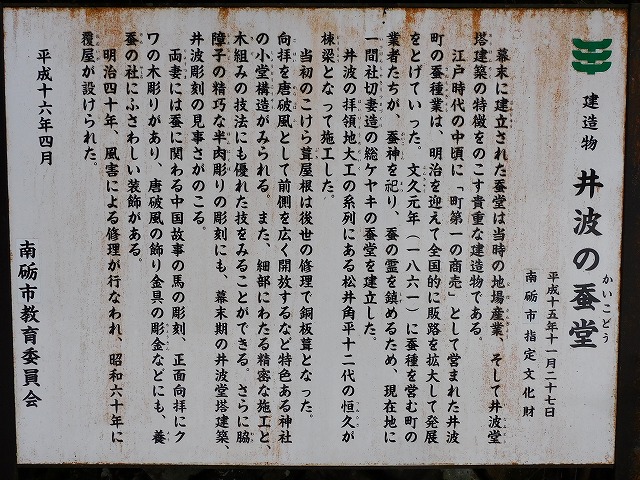 建造物 井波の蚕堂
かいこどう
平成十五年十一月二十七日
南砺市指定文化財
幕末に建立された蚕堂は当時の地場産業、そして井波堂
塔建築の特徴をのこす貴重な建造物である。
江戸時代の中頃に「町第一の商売」として営まれた井波
町の蚕種業は、明治を迎えて全国的に販路を拡大して発展
をとげていった。文久元年(一八六一)に蚕種を営む町の
業者たちが、蚕神を祀り、蚕の霊を鎮めるため、現在地に
一間社切妻造の総ケヤキの蚕堂を建立した。
井波の拝領地大工の系列にある松井角平十二代の恒久が
棟梁となって施工した。
当初のこけら葺屋根は後世の修理で銅板葺となった。
向拝を唐破風として前側を広く開放するなど特色ある神社
の小堂構造がみられる。また、細部にわたる精密な施工と、
木組みの技法にも優れた技をみることができる。さらに脇
障子の精巧な半肉彫りの彫刻にも、幕末期の井波堂塔建築、
井波彫刻の見事さがのこる。
両妻には蚕に関わる中国故事の馬の彫刻、正面向拝にク
ワの木彫りがあり、唐破風の飾り金具の彫金などにも、養
蚕の社にふさわしい装飾がある。
明治四十年、風害による修理が行なわれ、昭和六十年に
覆屋が設けられた。
平成十六年四月
南砺市教育委員会